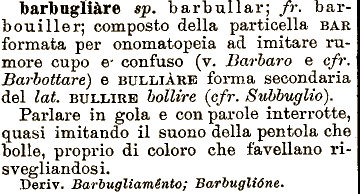 barbugliàre sp. barbullar; fr. bar-
bouiller; composto della particella BAR
formata per onomatopeia ad imitare ru-
more cupo e confuso (v. Barbaro e cfr.
Barbottare) e BULLIÀRE forma secondaria
del lat. BULLIRE bollire (cfr. Subbuglio).
Parlare in gola e con parole interrotte,
quasi imitando il suono della pentola che
bolle, proprio di coloro che favellano ri-
svegliandosi.
Deriv. Barbugliaménto; Barbuglióne.